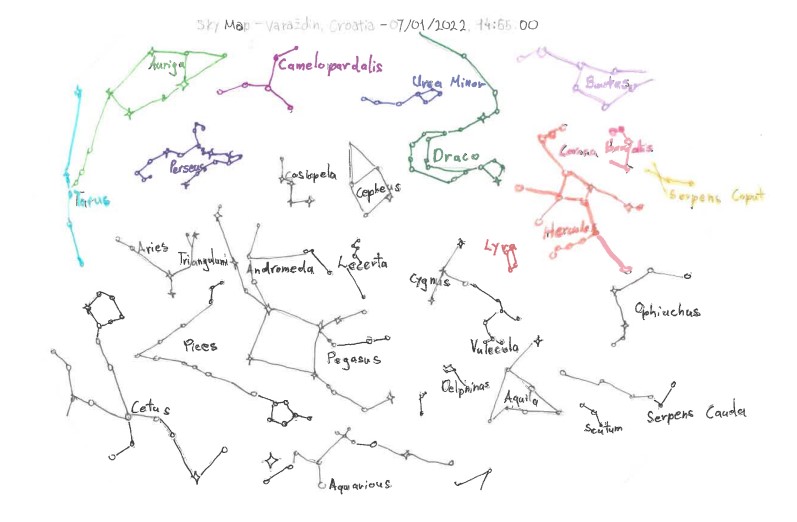 Sky Map - Varaždin, Croatia - 07/01/2022, 14:55:00
Auriga
Camelopardalis
Ursa Minor
Bootes
Perseus
Cassiopeia
Cepheus
Draco
Corona Borealis
Serpens Caput
Taurus
Hercules
Aries
Triangulum
Andromeda
Lacerta
Cygnus
Lyra
Ophiuchus
Pices
Pegasus
Vulecula
Delphinas
Aquila
Cetus
Scutum
Serpens Cauda
Aquarious